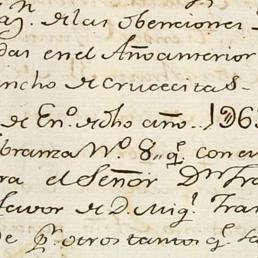 de las obenciones
das en el Año anterior
ncho de crucecitas
de En.º de dho año. 196
branza N.º 8„ q.e con
ra el Señor D.n Fra
favor de D. Mig.l Fran
de p.r otros tantos q.e